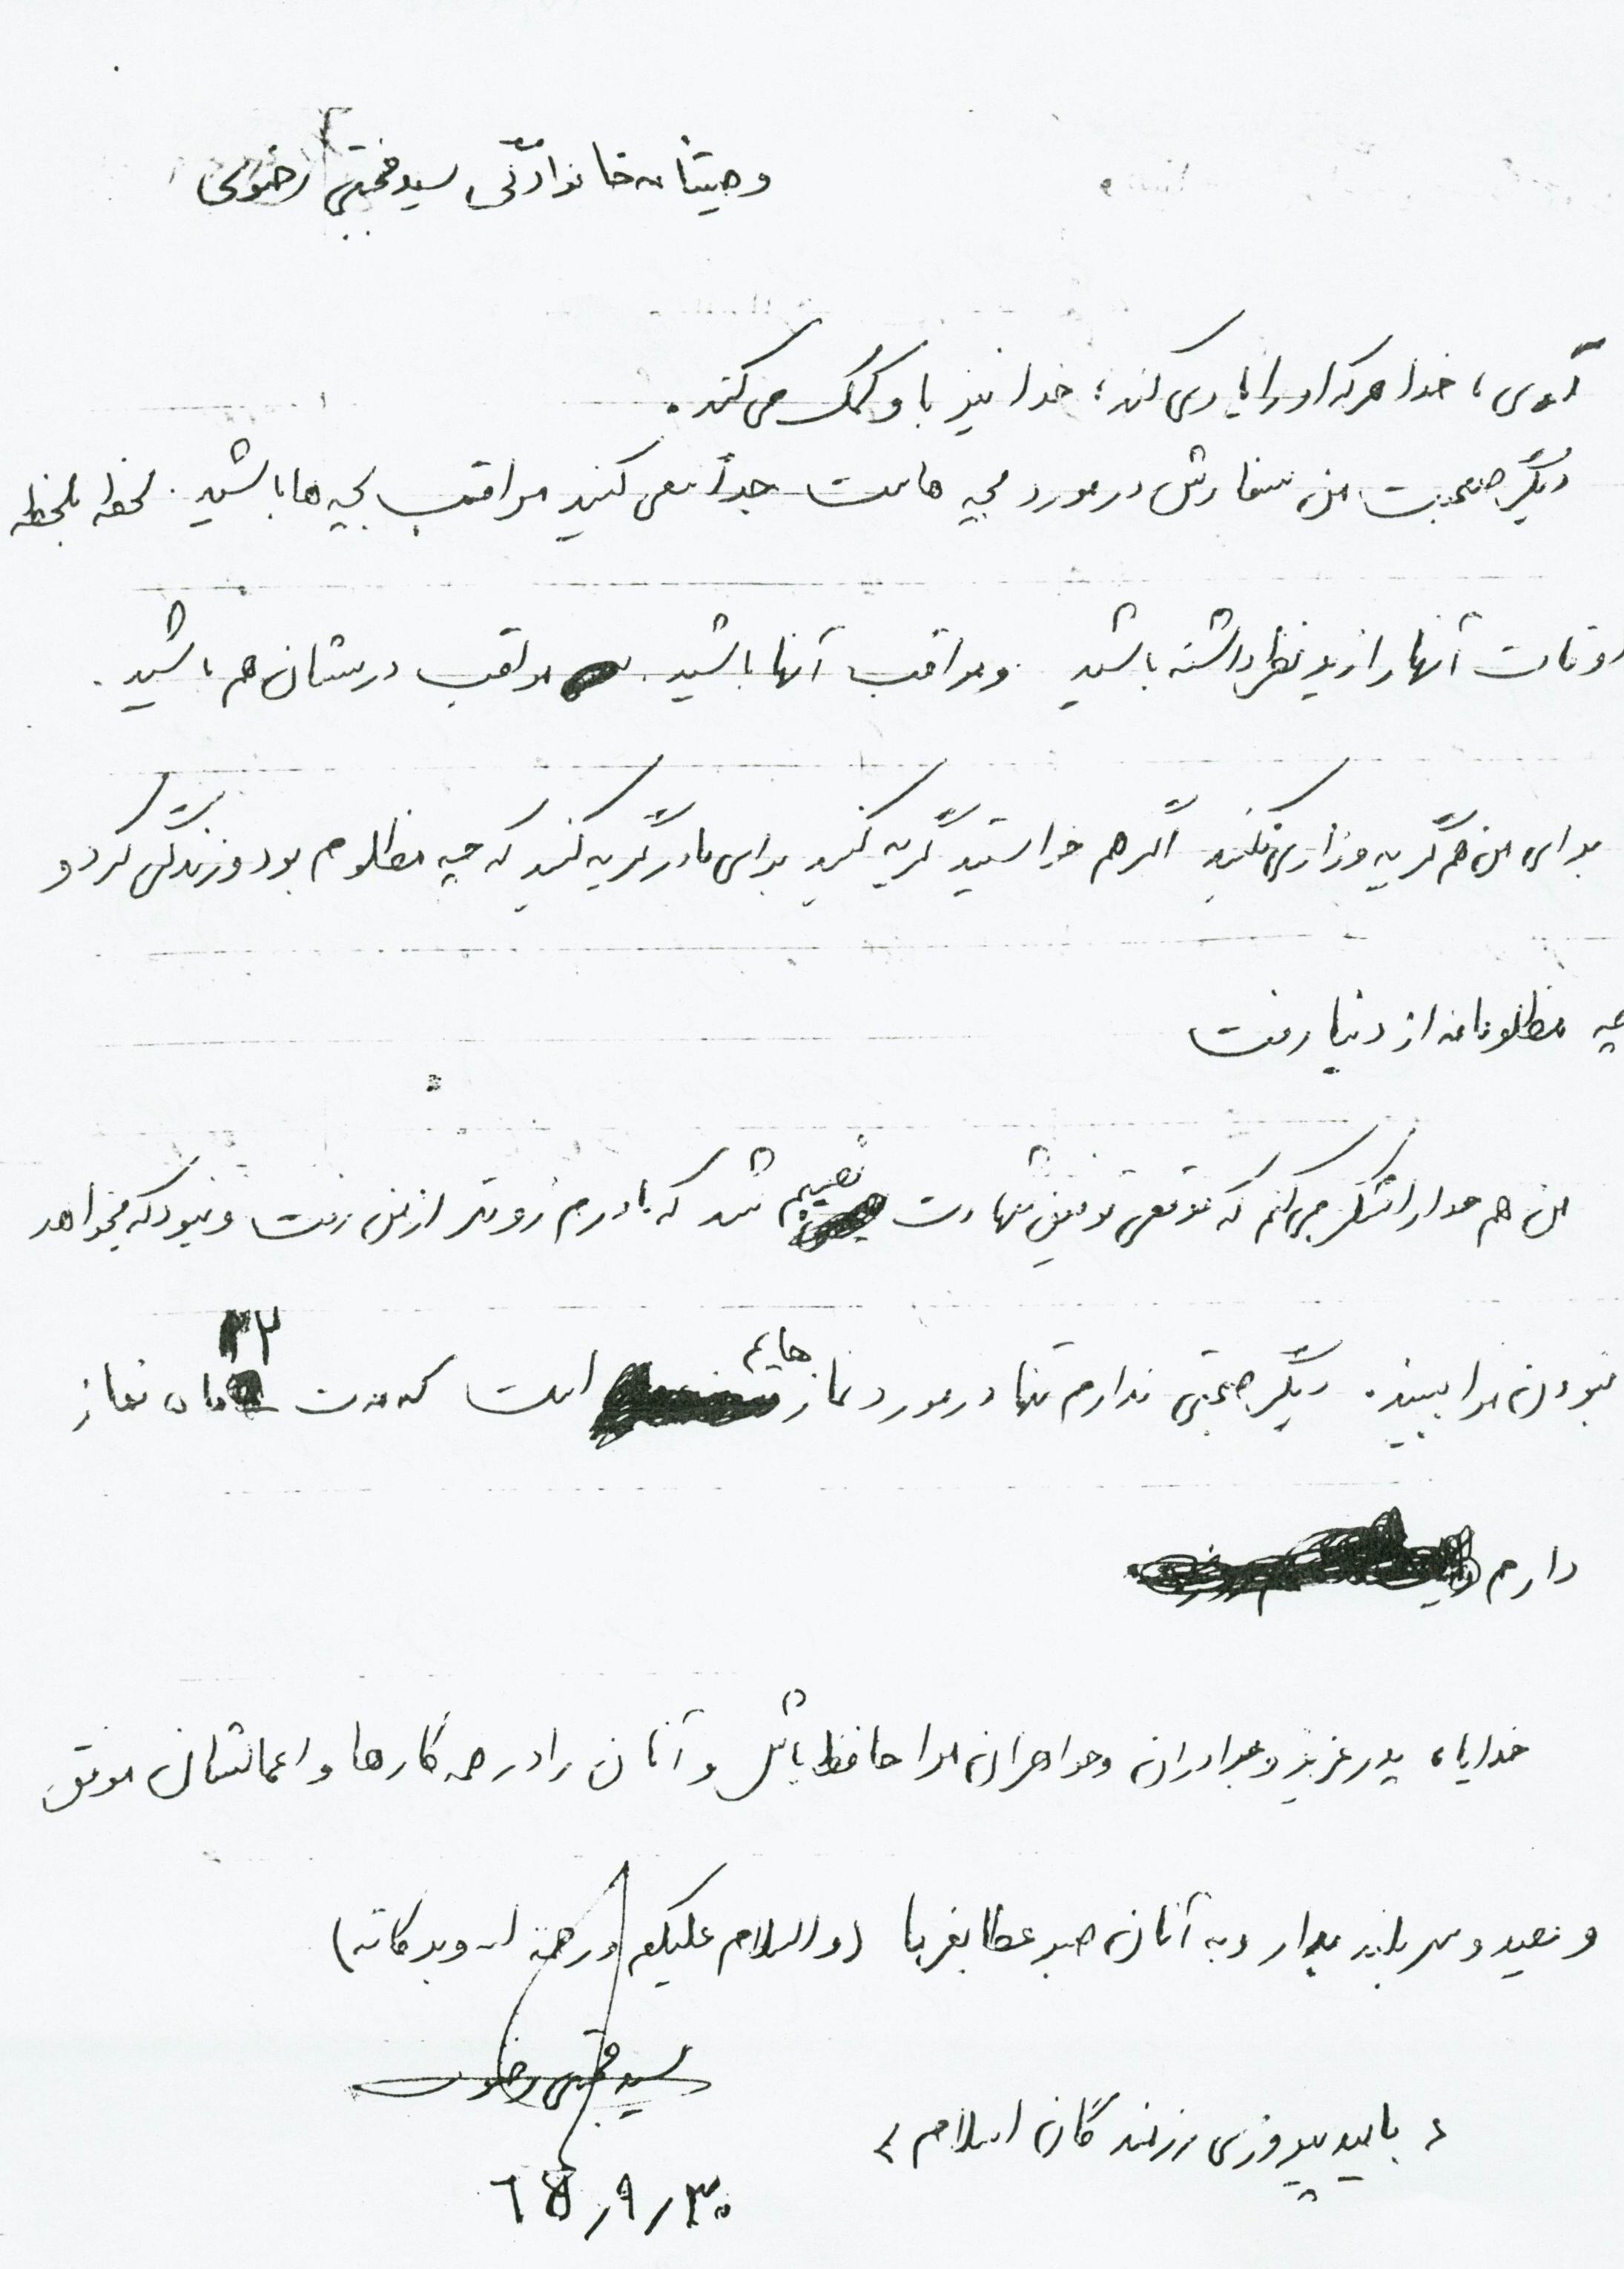 وصیتنامه خانوادگی سید مجتبی رضوی
آری، خدا هرکه او را یاری کند؛ خدا نیز باو کمک می کند.
دیگر صحبت من سفارش در مورد بچه هاست جداً سعی کنید مراقب بچه ها باشید. لحظه بلحظه
اوقات آنها را زیر نظر داشته باشید ومراقب آنها باشید. مراقب درسشان هم باشید.
برای من هم گریه وزاری نکنید اگر هم خواستید گریه کنید برای مادر گریه کنید که چه مظلوم بود وزندگی کرد و
چه مظلومانه از دنیا رفت
من هم خدا را شکر می کنم که موقعی توفیق شهادت نصیبم شد که مادرم زودتر از من رفت ونبود که بخواهد
نبودن مرا ببیند. دیگر صحبتی ندارم تنها در مورد نمازهایم است که مدت ۲۲ ماه نماز
دارم
خدایا، پدر عزیز و برادران وخواهران مرا حافظ باش و آنان را در همه کارها و اعمالشان موفق
و سربلند بدار و به آنان صبر عطا بفرما (والسلام علیکم ورحمة اله وبرکاته)
سید مجتبی رضوی
« بامید پیروزی رزمندگان اسلام »
۳۰/۹/